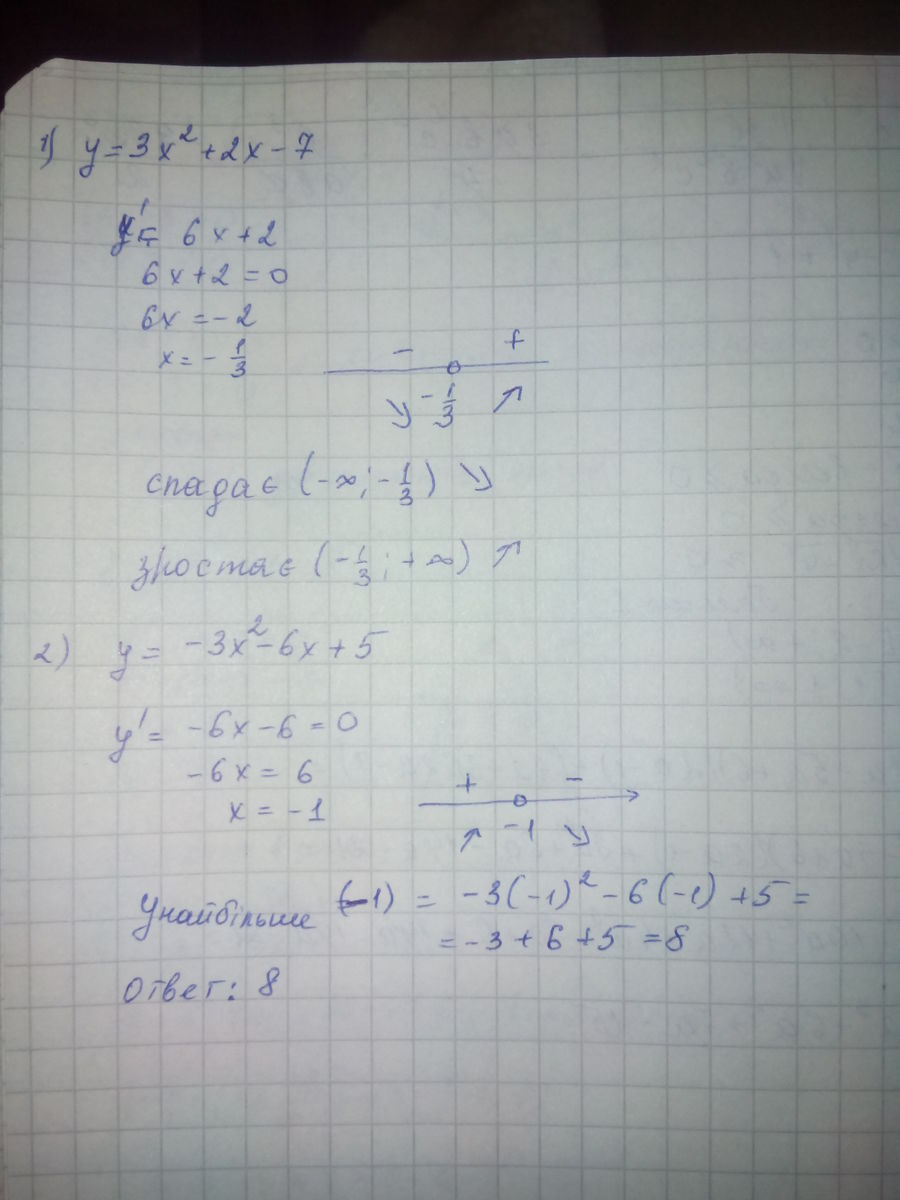 1) y = 3x² + 2x - 7
y' = 6x + 2
6x + 2 = 0
6x = -2
x = - 1/3
- +
↘ - 1/3 ↗
спадає (-∞; - 1/3) ↘
зростає (- 1/3; +∞) ↗
2) y = -3x² - 6x + 5
y' = -6x - 6 = 0
-6x = 6
x = -1
+ -
↗ -1 ↘
Унайбільше (-1) = -3(-1)² - 6(-1) + 5 =
= -3 + 6 + 5 = 8
Ответ: 8